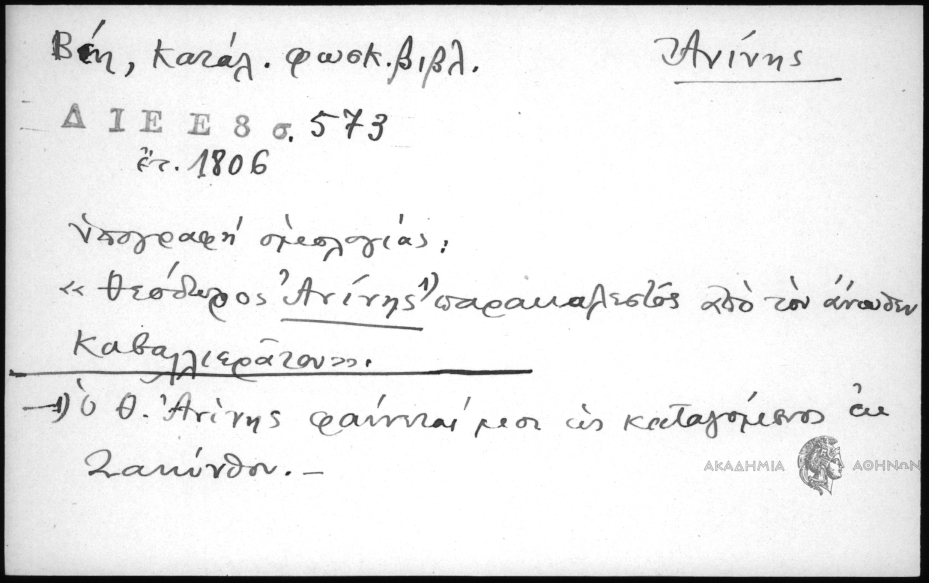 Βέη, Κατάλ. φωσκ. βιβλ.
Ἀνίνης
Δ Ι Ε Ε 8 σ. 573
ἔτ. 1806
ὑπογραφὴ ὁμολογίας:
« Θεόδωρος Ἀνίνης 1) παρακαλεστός ἀπὸ τὸν ἄνωθεν
Καβαλλιεράτον».
1) Ὁ Θ. Ἀνίνης φαίνεταί μοι ὡς καταγόμενος ἐκ
Ζακύνθου. –
ΑΚΑΔΗΜΙΑ ΑΘΗΝΩΝ